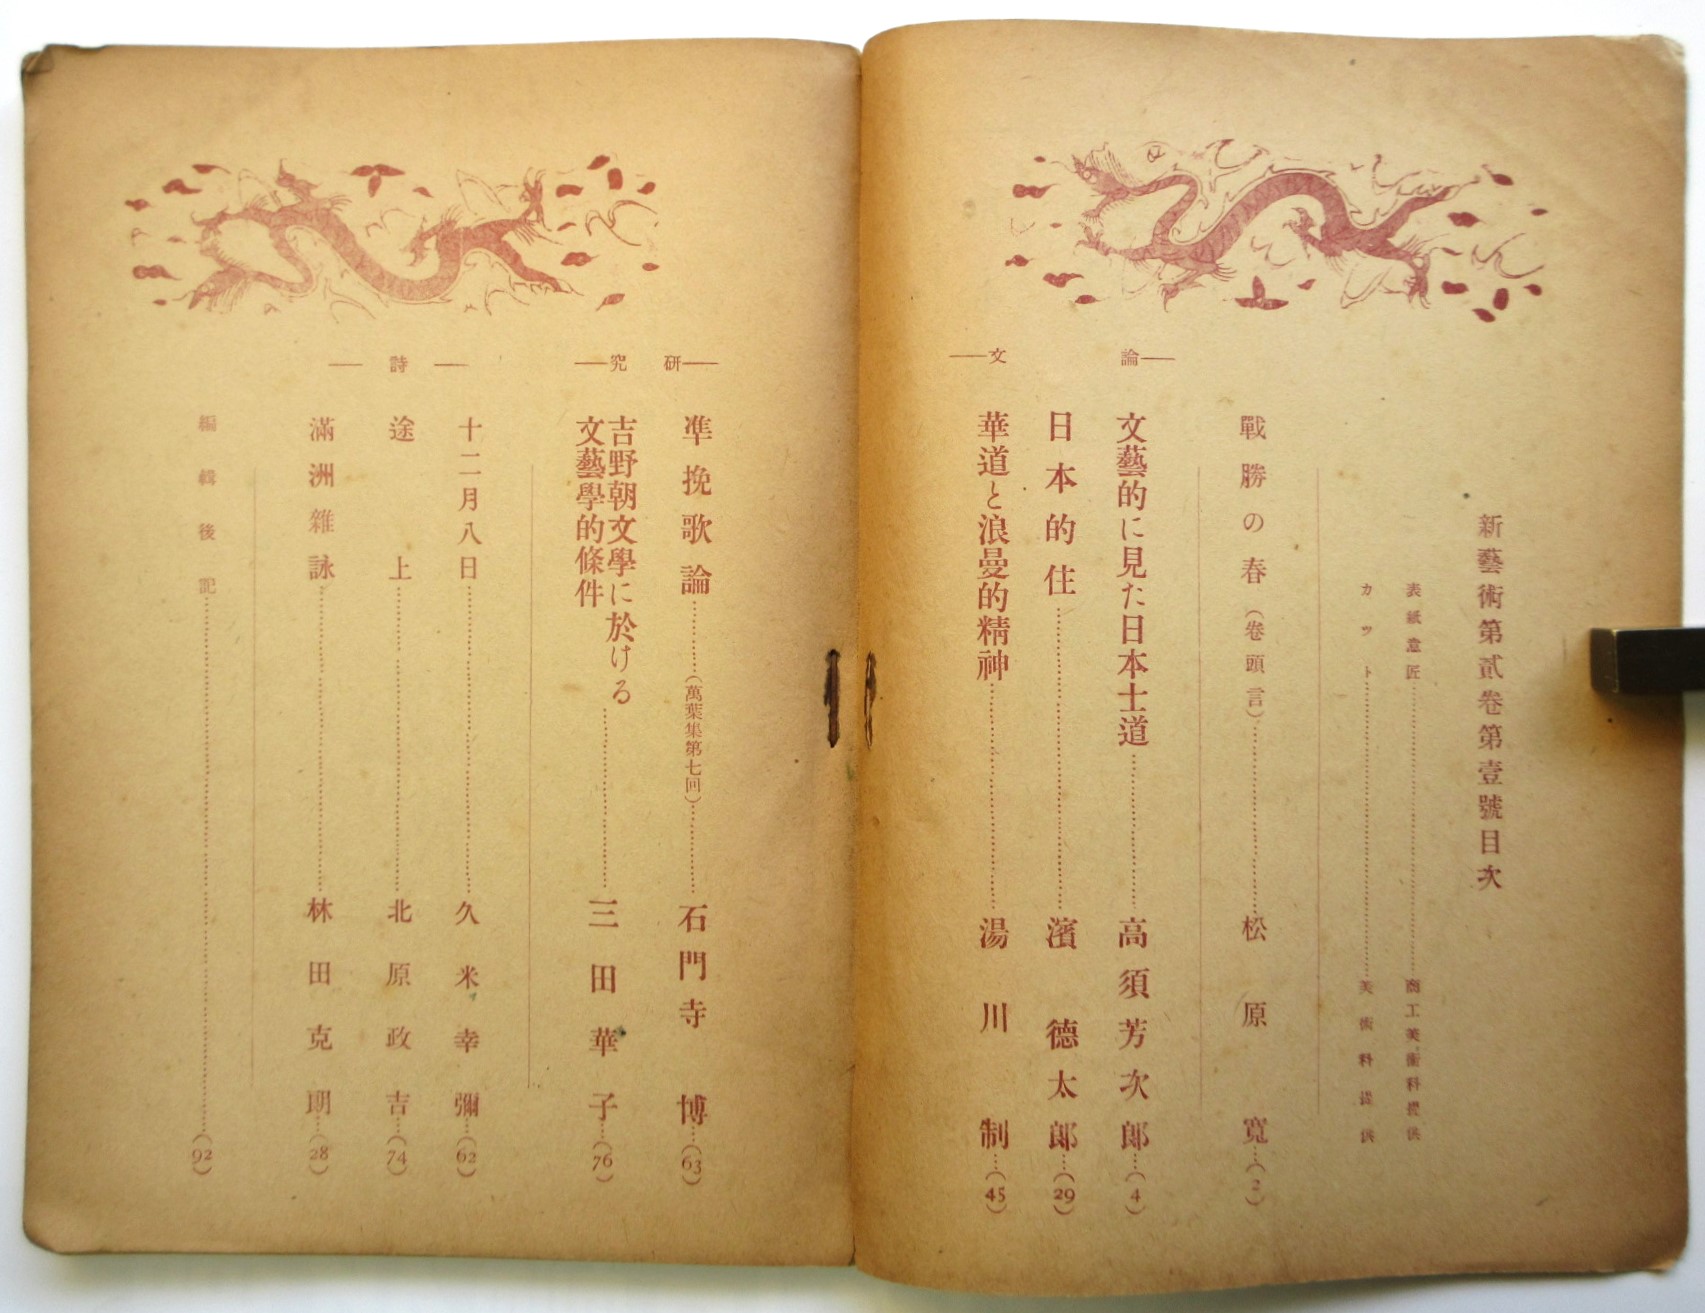 新藝術第貳卷第壹號目次
表紙意匠……商工美術科提供
カット……美術科提供
戰勝の春(卷頭言)……松原寬…(2)
論文
文藝的に見た日本士道……高須芳次郎…(4)
日本的住……濱德太郎…(29)
華道と浪曼的精神……湯川制…(45)
研究
準挽歌論……(萬葉集第七回)……石門寺博…(63)
吉野朝文學に於ける
文藝學的條件……三田華子…(76)
詩
十二月八日……久米幸彌…(62)
途上……北原政吉…(74)
滿洲雜詠……林田克期…(28)
編輯後記……(92)